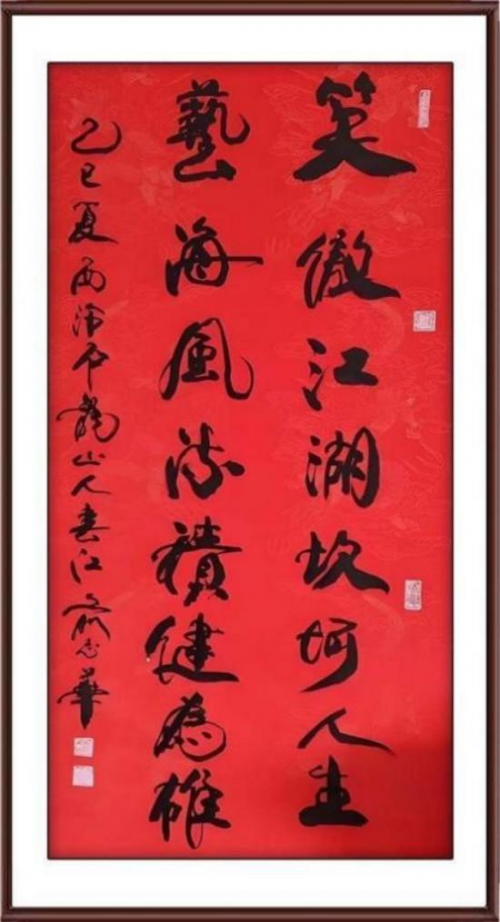 笑傲江湖坎坷人生
藝海風流積健為雄
乙巳夏西泠中龍山人春江俞志華